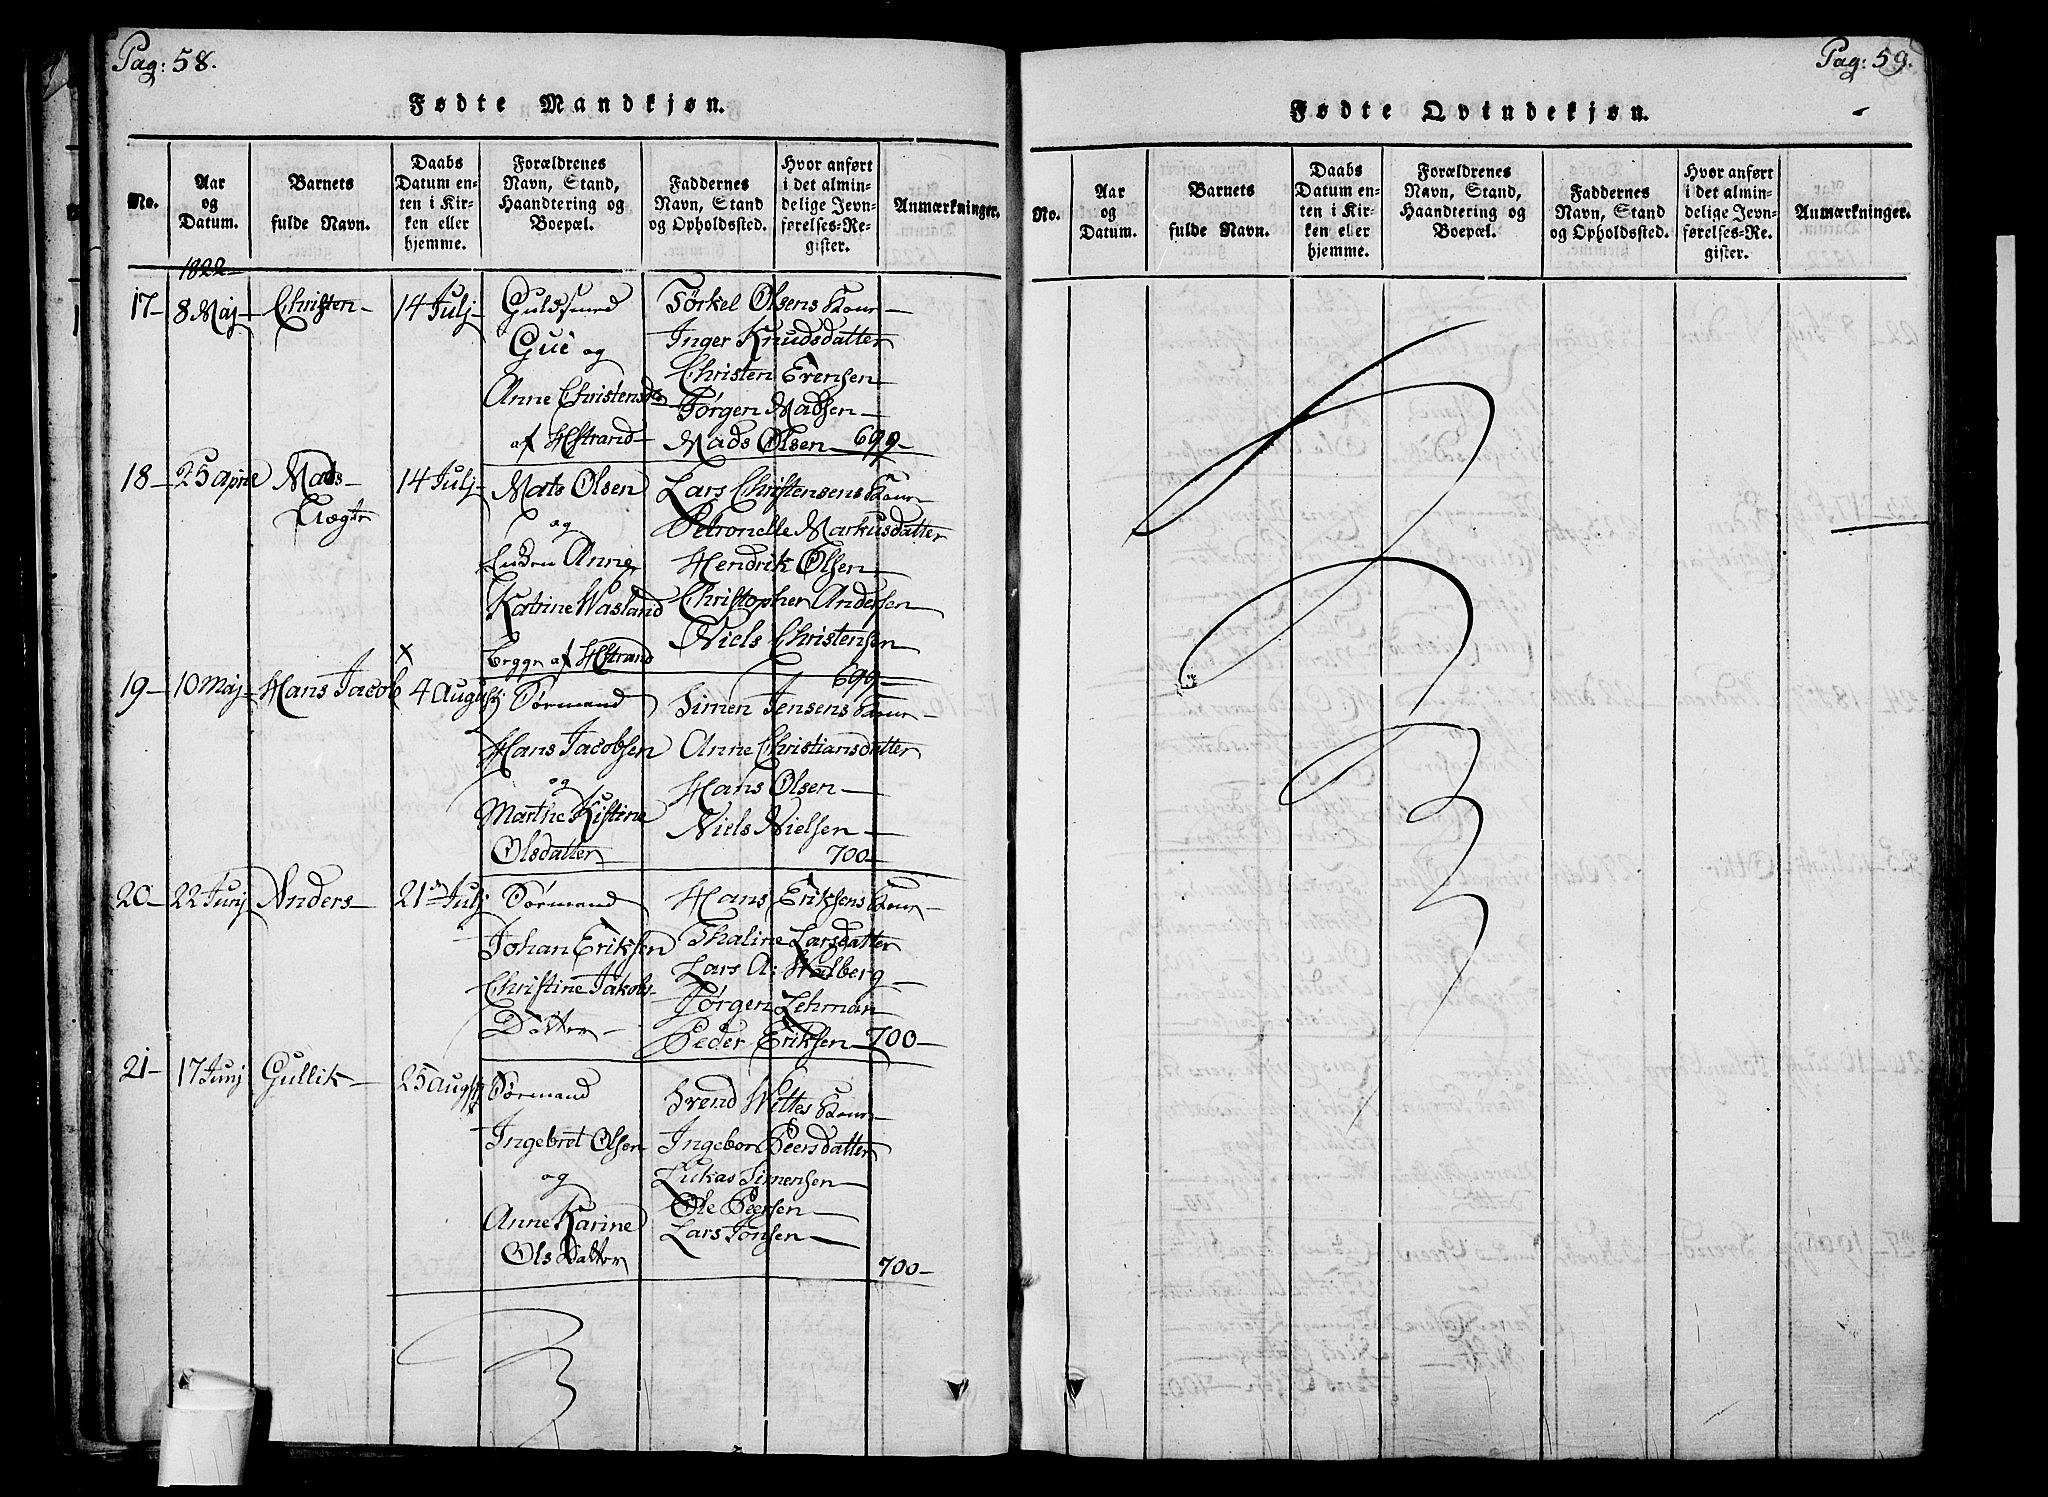 Pag: 58.
Fødte Mandkjøn.
No.
Aar
og
Datum.
Barnets
fulde Navn.
Daabs
Datum en-
ten i Kir-
ken eller
hjemme.
Forældrenes
Navn, Stand,
Haandtering og
Boepæl.
Faddernes
Navn, Stand
og Opholdssted.
Hvor anført
i det almin-
delige Jevn-
førelses-Re-
gister.
Anmærkninger.
1822
17 — 8 Maj — Christen — 14 Julj
Guldsmed
Gue og
Anne Christensd
af HStrand
Tørkel Olsens Kone
Inger Knudsdatter
Christen Evensen
Jørgen Madsen
Mads Olsen — 699 —
18 — 25 Aprie Mads
Ægte
14 Julj
Mats Olsen
og
Anne
Katrine Wasland
af HStrand
Lars Christensens Kone
Petronelle Markusdatter
Hendrik Olsen
Christopher Andersen
Niels Christensen
699 —
19 — 10 Maj — Hans Jacob
x
4 August
Sørmand
Hans Jacobsen
og
Marthe Kistine
Olsdatter
Simen Jensens Kone
Anne Christiansdatter
Hans Olsen —
Niels Nielsen —
700 —
20 — 22 Junj Anders — 21 Julj
Sørmand
Johan Eriksen
Christine Jakobs-
Datter —
Hans Eriksens Kone
Thaline Larsdatter
Lars A: Walberg
Jørgen Lehman
Peder Eriksen — 700 —
21 — 17 Junj Gullik — 25 Augst
Sørmand
Ingebret Olsen
og
Anne Karine
Ols Datter
Svend Wittes Kone
Ingebor Peersdatter
Lukas Simensen
Ole Peersen —
Lars Jonsen —
700 —
Pag: 59.
Fødte Qvindekjøn.
No.
Aar
og
Datum.
Barnets
fulde Navn.
Daabs
Datum en-
ten i Kir-
ken eller
hjemme.
Forældrenes
Navn, Stand,
Haandtering og
Boepæl.
Faddernes
Navn, Stand
og Opholdssted.
Hvor anført
i det almin-
delige Jevn-
førelses-Re-
gister.
Anmærkninger.